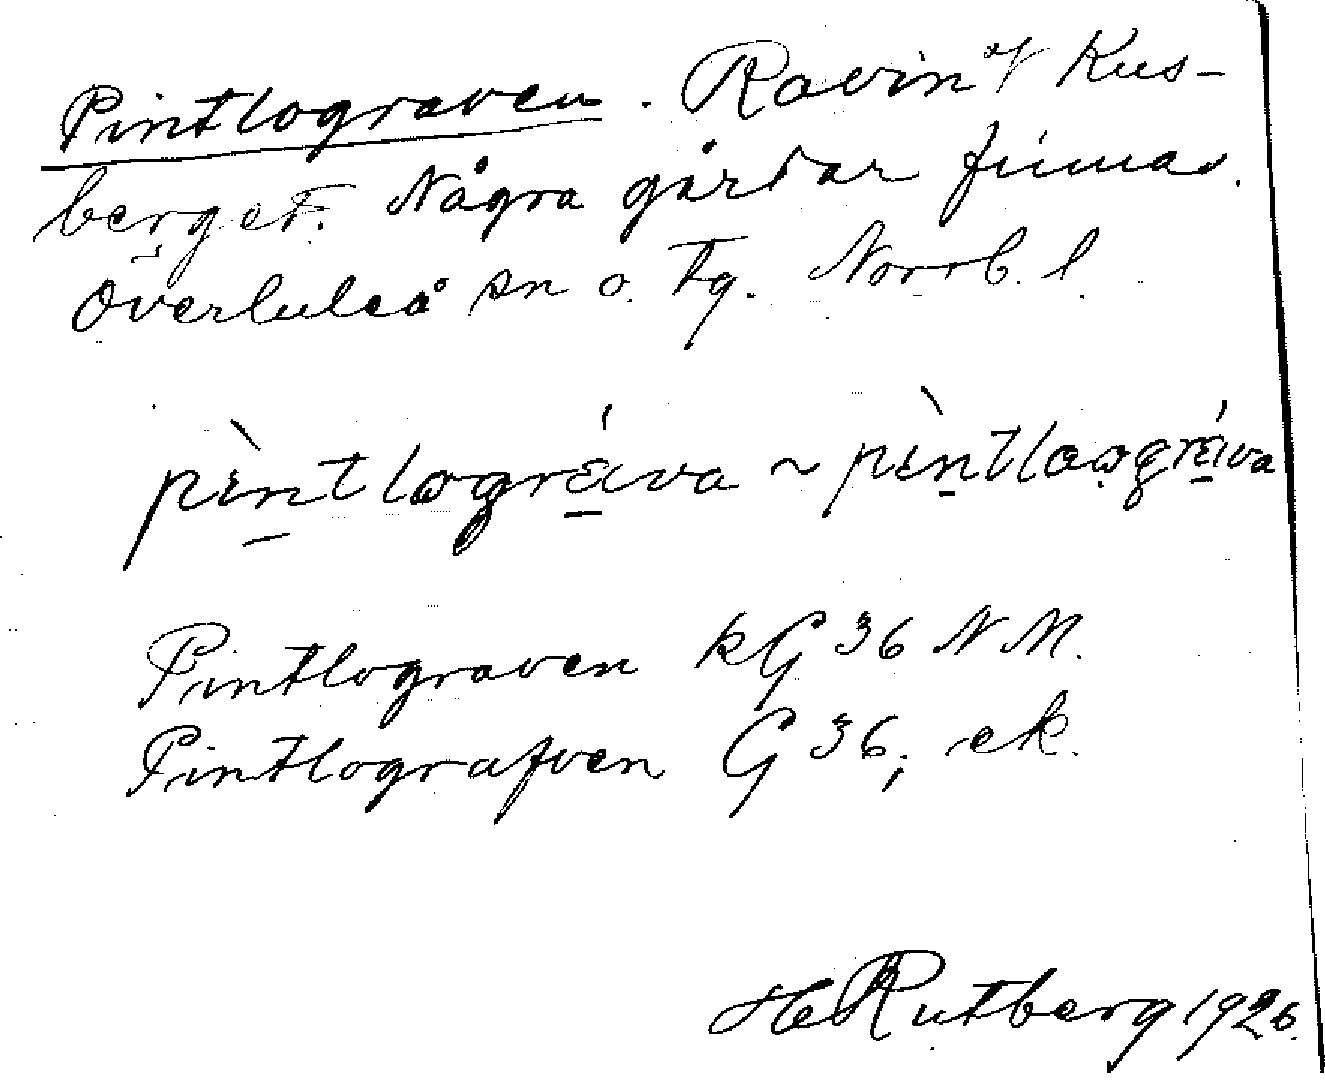 Pintlograven. Ravin v Kus-
berget. Några gårdar finnas.
Överluleå sn o. tg. Norrb. l.
pìntlográiva ~ pìntloográiva
Pintlograven kG 36 NM.
Pintlografven G 36, ek.
HRutberg 1926.